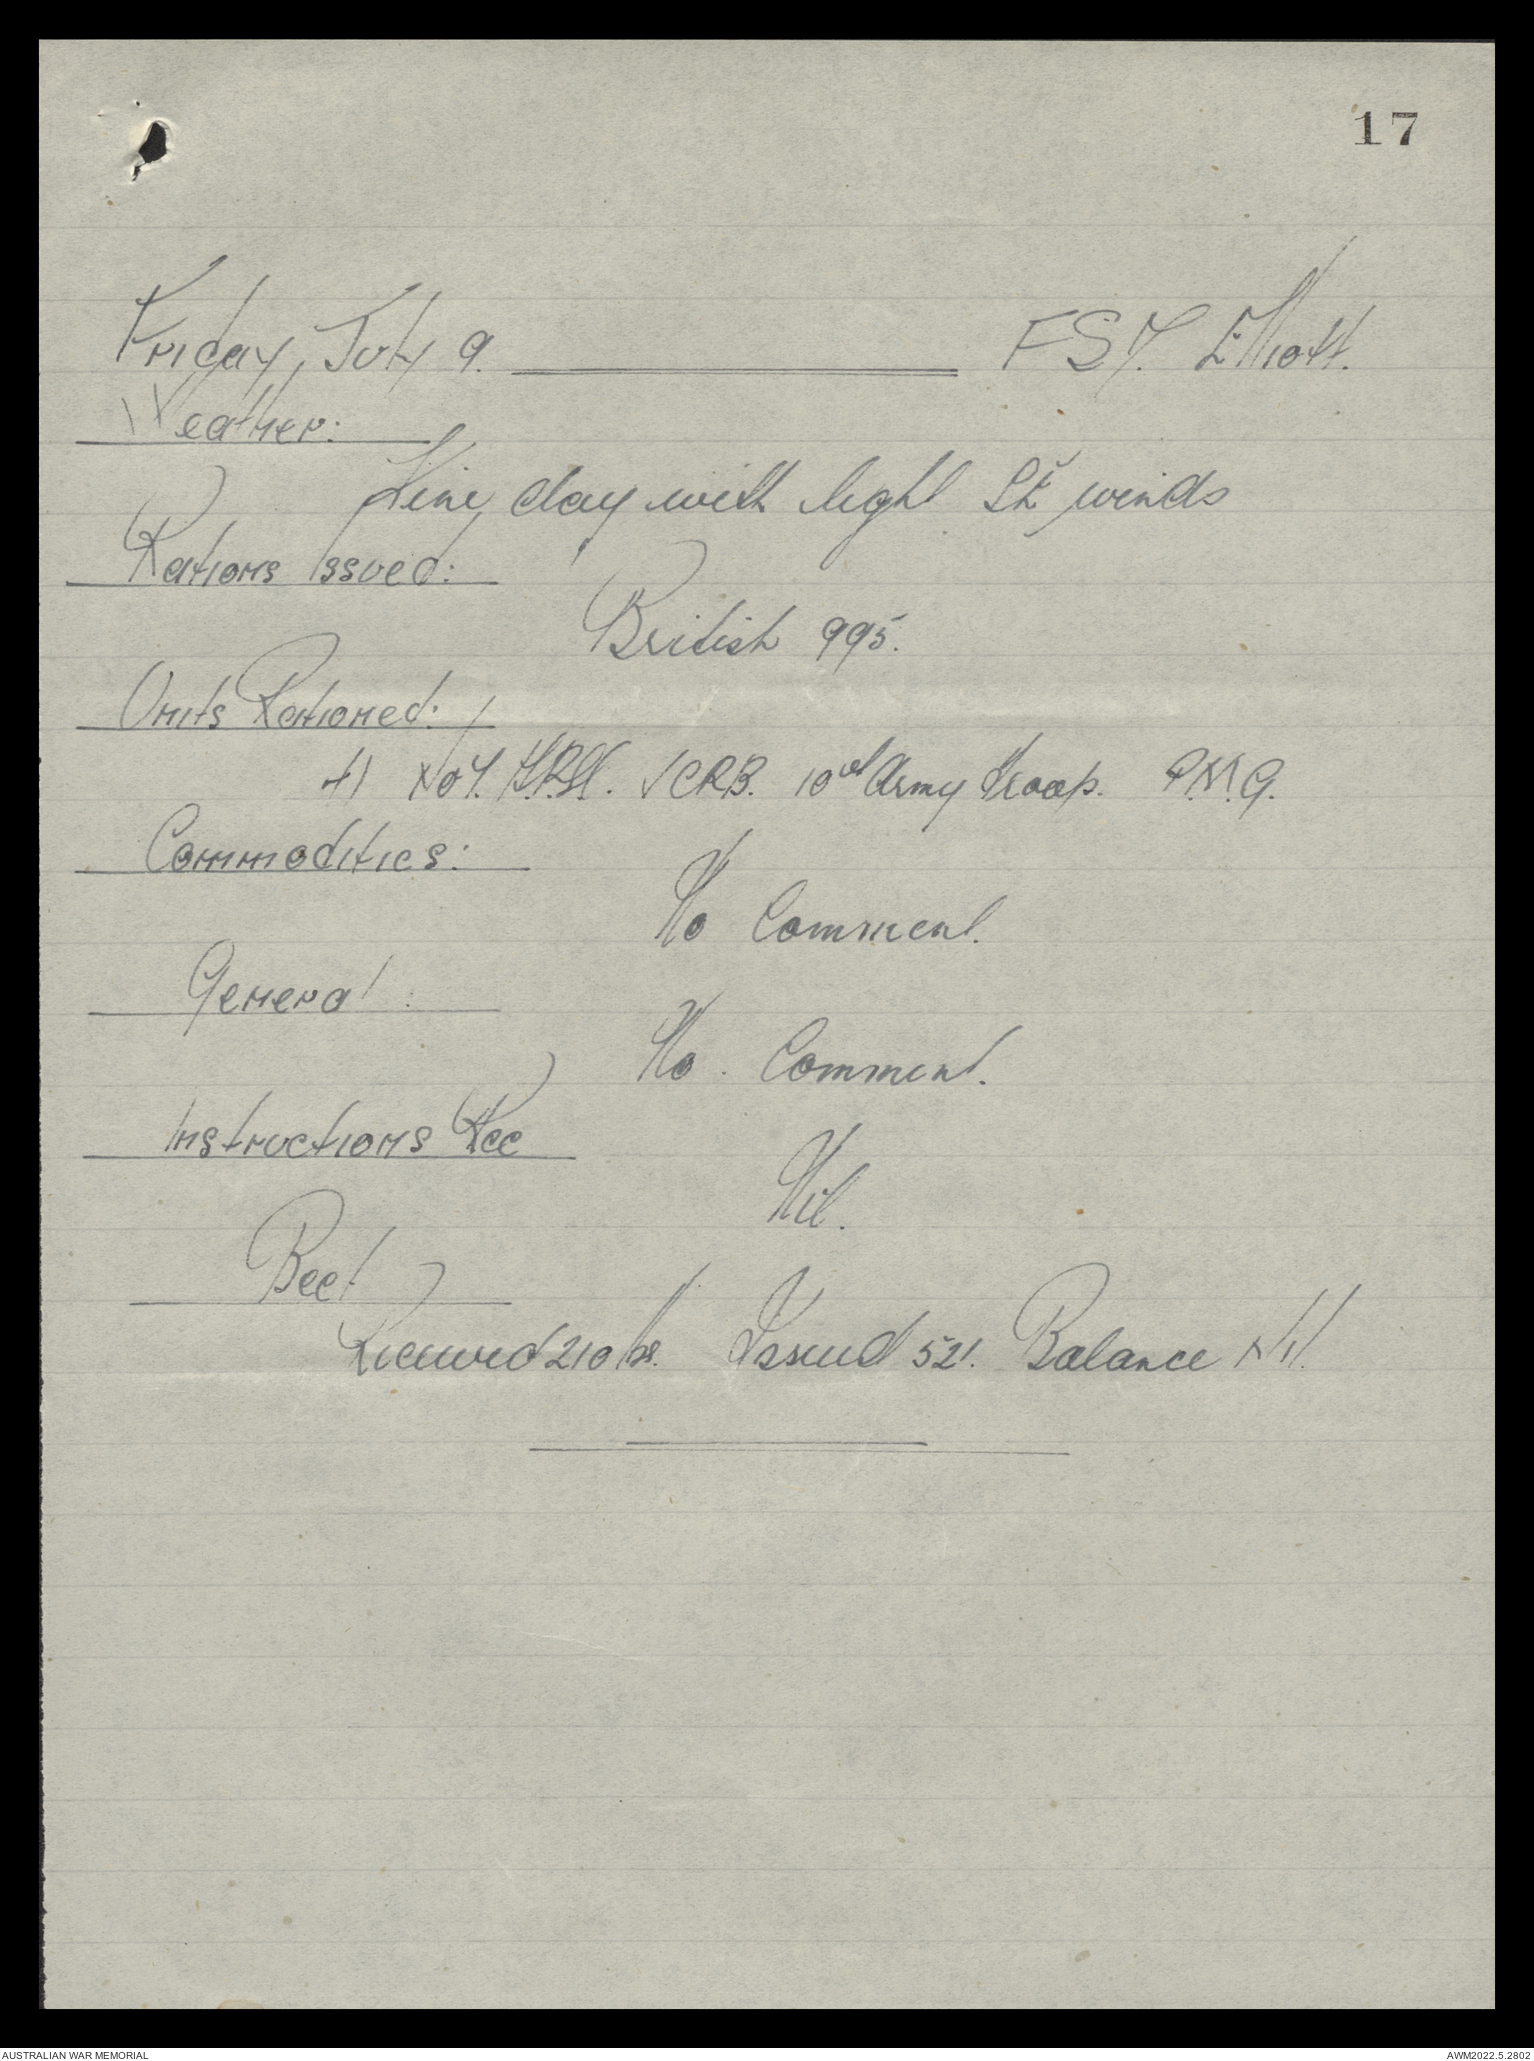 17
Friday, July 9. FSY. Elliott.
Weather:
Fine day with light SE winds
Rations Issued:
British 995.
Units Rationed:
41 No 1. 10 Army Troop.
Commodities:
No Comment.
General:
No. Comment.
Instructions Rec
Nil.
Beef
Received 210 Issued 521. Balance Nil.
AUSTRALIAN WAR MEMORIAL AWM2022.5.2802